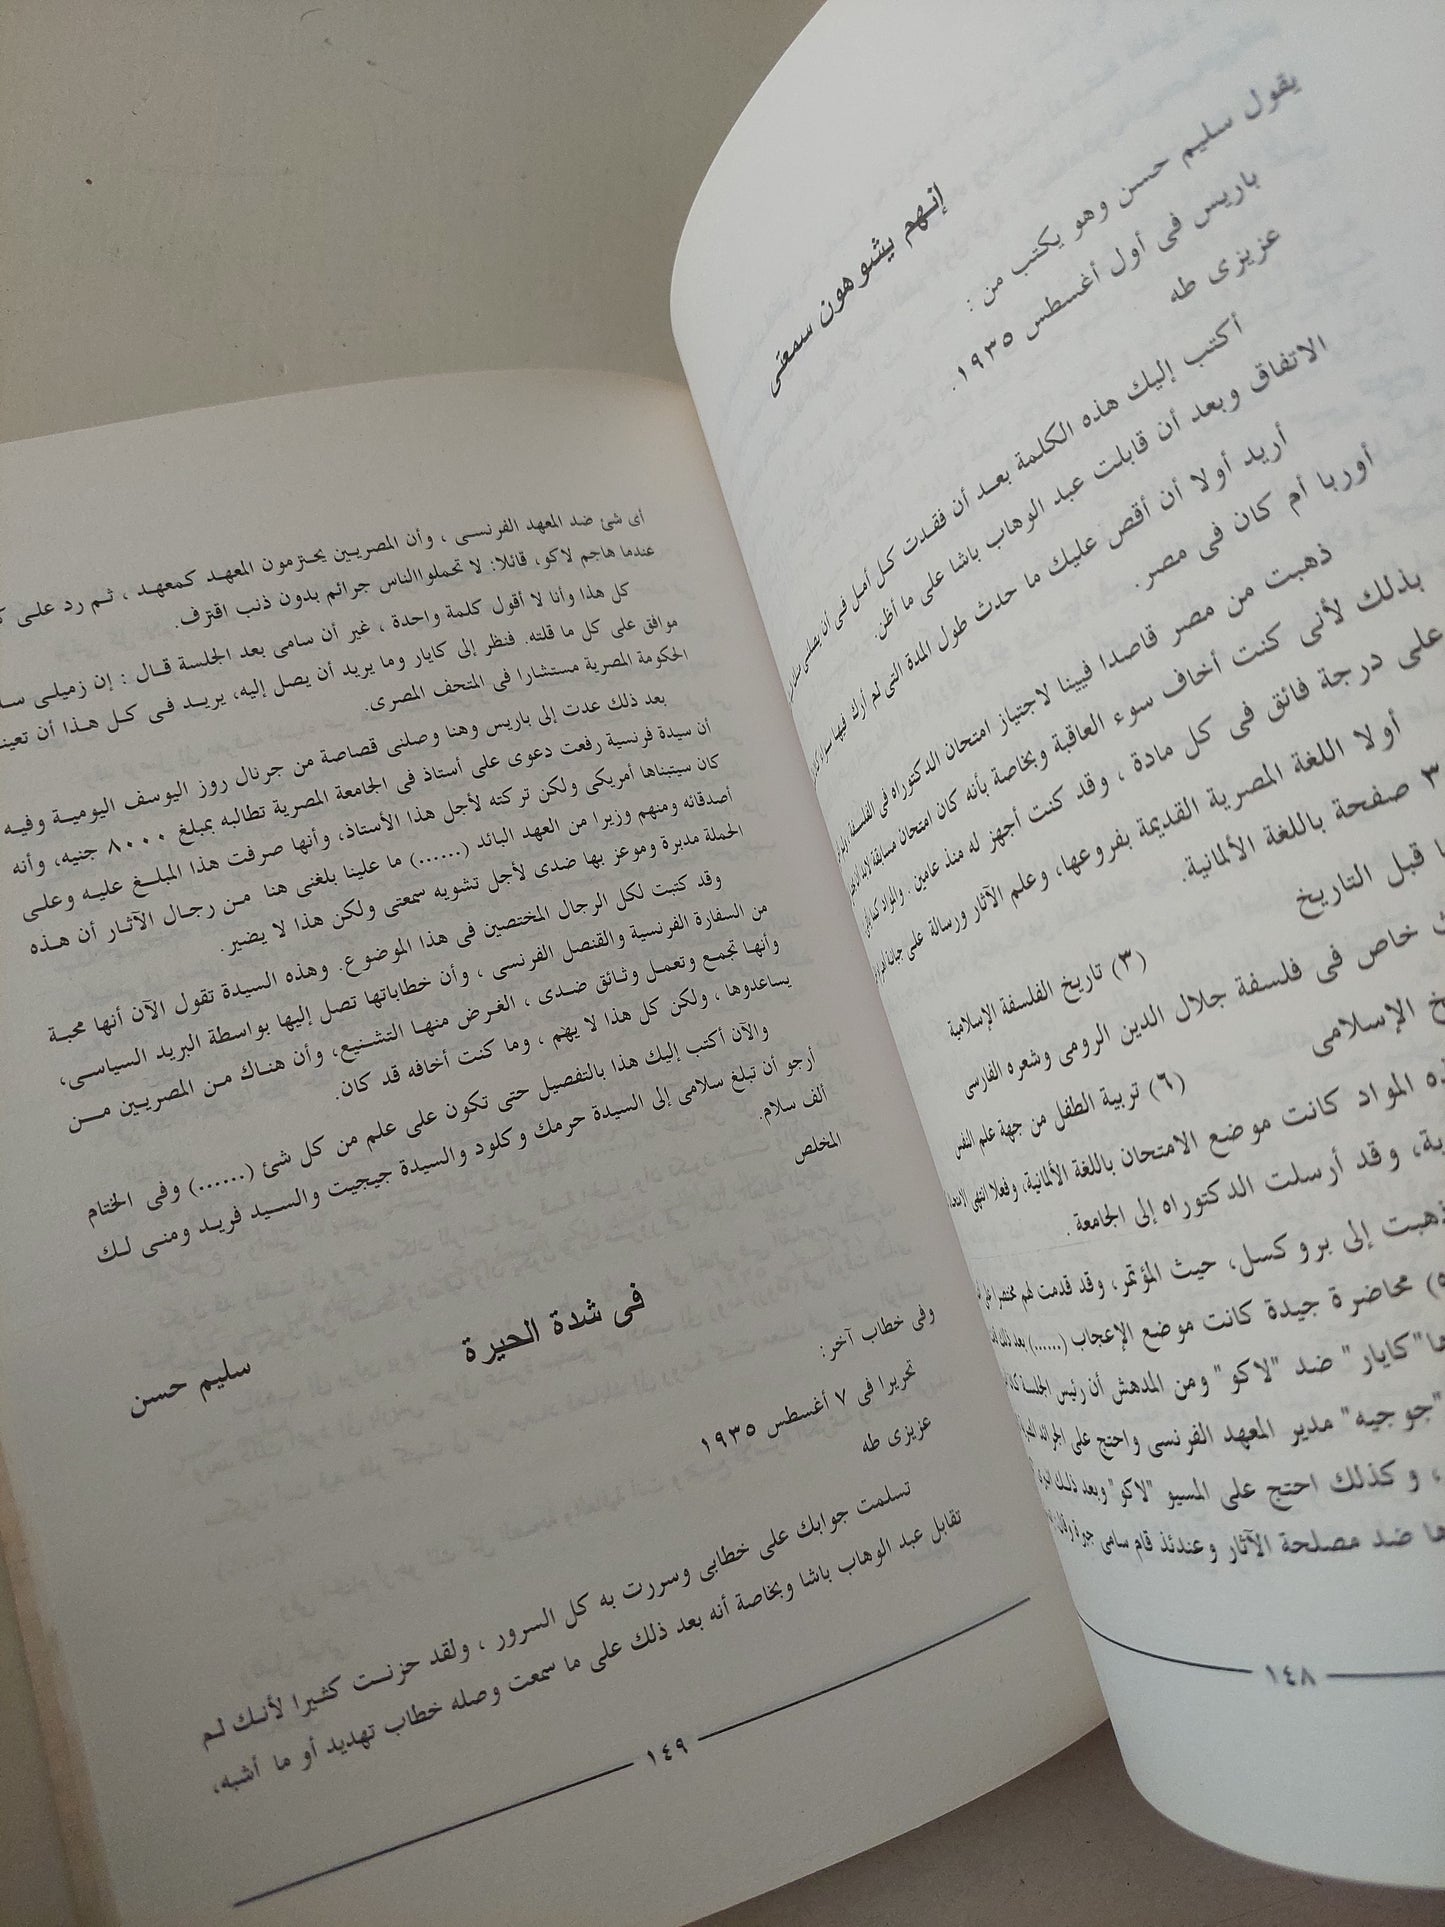 إنهم يشوهون سمعتى
يقول سليم حسن وهو يكتب من :
باريس فى أول أغسطس ١٩٣٥.
عزيزى طه
أكتب إليك هذه الكلمة بعد أن فقدت كل أمل فى أن يصلنى
الاتفاق وبعد أن قابلت عبد الوهاب باشا على ما أظن.
أريد أولا أن أقص عليك ما حدث طول المدة التى لم أرك فيها سواء كان
أوربا أم كان فى مصر.
ذهبت من مصر قاصدا فيينا لاجتياز امتحان الدكتوراه فى الفلسفة
بذلك لأنى كنت أخاف سوء العاقبة وبخاصة بأنه كان امتحان مسابقة
على درجة فائق فى كل مادة ، وقد كنت أجهز له منذ عامين . والمواد
أولا اللغة المصرية القديمة بفروعها، وعلم الآثار ورسالة على
٣ صفحة باللغة الألمانية.
قبل التاريخ
(٣) تاريخ الفلسفة الإسلامية
خاص فى فلسفة جلال الدين الرومى وشعره الفارسى
الإسلامى
(٦) تربية الطفل من جهة علم النفس
المواد كانت موضع الامتحان باللغة الألمانية، وفعلا انتهى
وقد أرسلت الدكتوراه إلى الجامعة .
ذهبت إلى بروكسل، حيث المؤتمر، وقد قدمت لهم مختصرا
محاضرة جيدة كانت موضع الإعجاب (......) بعد ذلك
"كايار" ضد "لاكو" ومن المدهش أن رئيس الجلسة
"جوجيه" مدير المعهد الفرنسى واحتج على الجرائد
، وكذلك احتج على المسيو "لاكو" وبعد ذلك
ضد مصلحة الآثار وعندئذ قام سامى جبرة وقال
١٤٨
أى شئ ضد المعهد الفرنسى ، وأن المصريين يحترمون المعهد كمعهد ، ثم رد على
عندما هاجم لاكو، قائلا: لا تحملوا الناس جرائم بدون ذنب اقترف.
كل هذا وأنا لا أقول كلمة واحدة ، غير أن سامى بعد الجلسة قال : إن زميلى
موافق على كل ما قلته. فنظر إلى كايار وما يريد أن يصل إليه، يريد فى كل هذا أن
الحكومة المصرية مستشارا فى المتحف المصرى.
بعد ذلك عدت إلى باريس وهنا وصلنى قصاصة من جرنال روز اليوسف اليومية وفيه
أن سيدة فرنسية رفعت دعوى على أستاذ فى الجامعة المصرية تطالبه بمبلغ ٨٠٠٠ جنيه، وأنه
كان سيتبناها أمريكى ولكن تركته لأجل هذا الأستاذ، وأنها صرفت هذا المبلغ عليه وعلى
أصدقائه ومنهم وزيرا من العهد البائد (......) ما علينا بلغنى هنا من رجال الآثار أن هذه
الحملة مدبرة وموعز بها ضدى لأجل تشويه سمعتى ولكن هذا لا يضير.
وقد كتبت لكل الرجال المختصين فى هذا الموضوع. وهذه السيدة تقول الآن أنها محبة
من السفارة الفرنسية والقنصل الفرنسى ، وأن خطاباتها تصل إليها بواسطة البريد السياسى،
وأنها تجمع وتعمل وثائق ضدى ، الغرض منها التشنيع، وأن هناك من المصريين من
يساعدوها ، ولكن كل هذا لا يهم ، وما كنت أخافه قد كان.
والآن أكتب إليك هذا بالتفصيل حتى تكون على علم من كل شئ (......) وفى الختام
أرجو أن تبلغ سلامى إلى السيدة حرمك وكلود والسيدة جيجيت والسيد فريد ومنى لك
ألف سلام.
المخلص
سليم حسن
فى شدة الحيرة
وفى خطاب آخر:
تحريرا فى ٧ أغسطس ١٩٣٥
عزيزى طه
تسلمت جوابك على خطابى وسررت به كل السرور ، ولقد حزنت كثيرا لأنك لم
تقابل عبد الوهاب باشا وبخاصة أنه بعد ذلك على ما سمعت وصله خطاب تهديد أو ما أشبه،
١٤٩